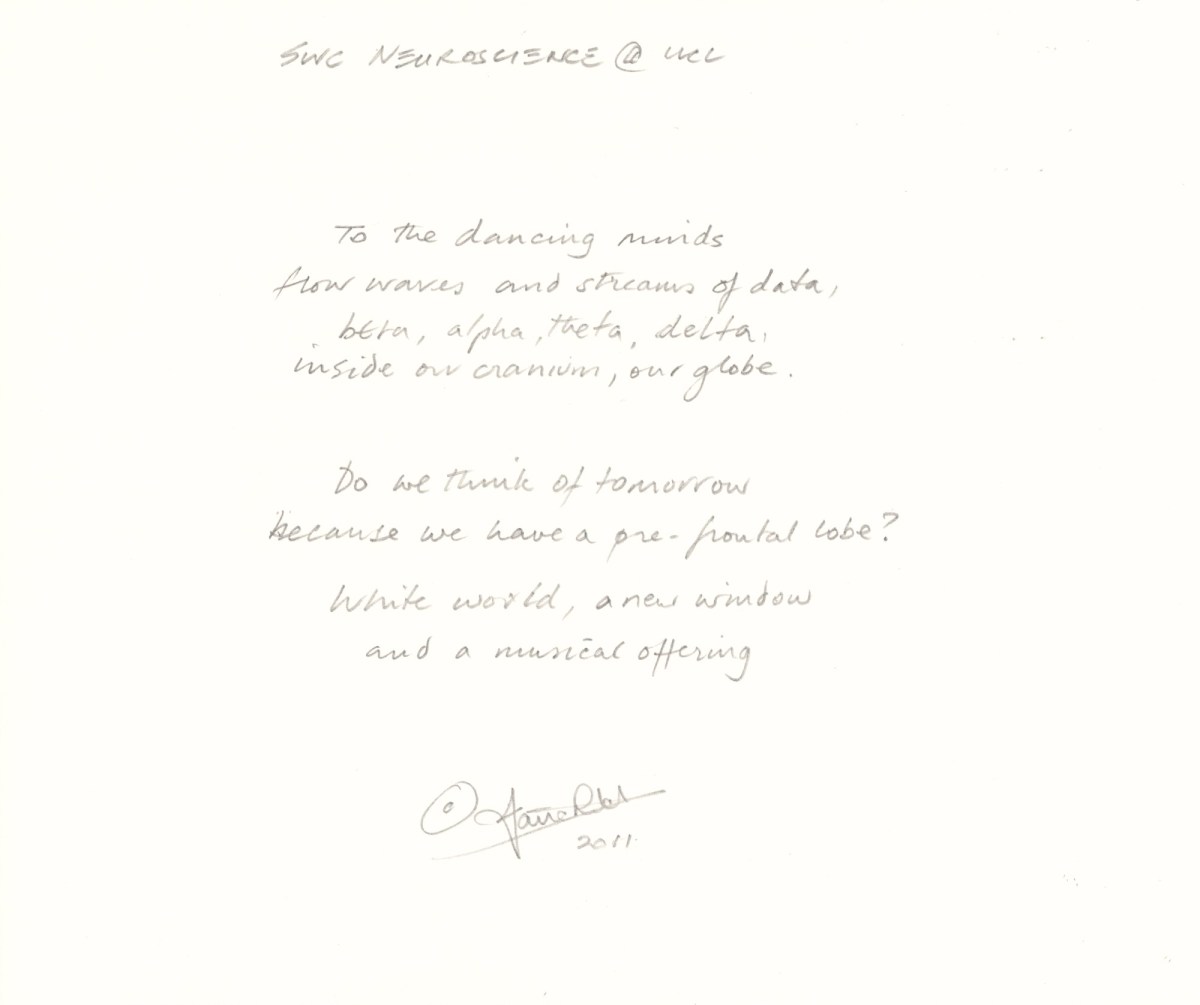 SWC NEUROSCIENCE @ UCL
To the dancing minds
flow waves and streams of data,
beta, alpha, theta, delta,
inside our cranium, our globe.
Do we think of tomorrow
because we have a pre-frontal lobe?
White world, a new window
and a musical offering
2011